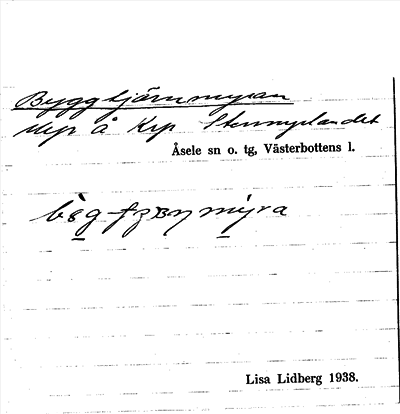 Byggtjärnmyran
Myr å Krp Stenmyrlandet
Åsele sn o. tg, Västerbottens l.
myra
Lisa Lidberg 1938.